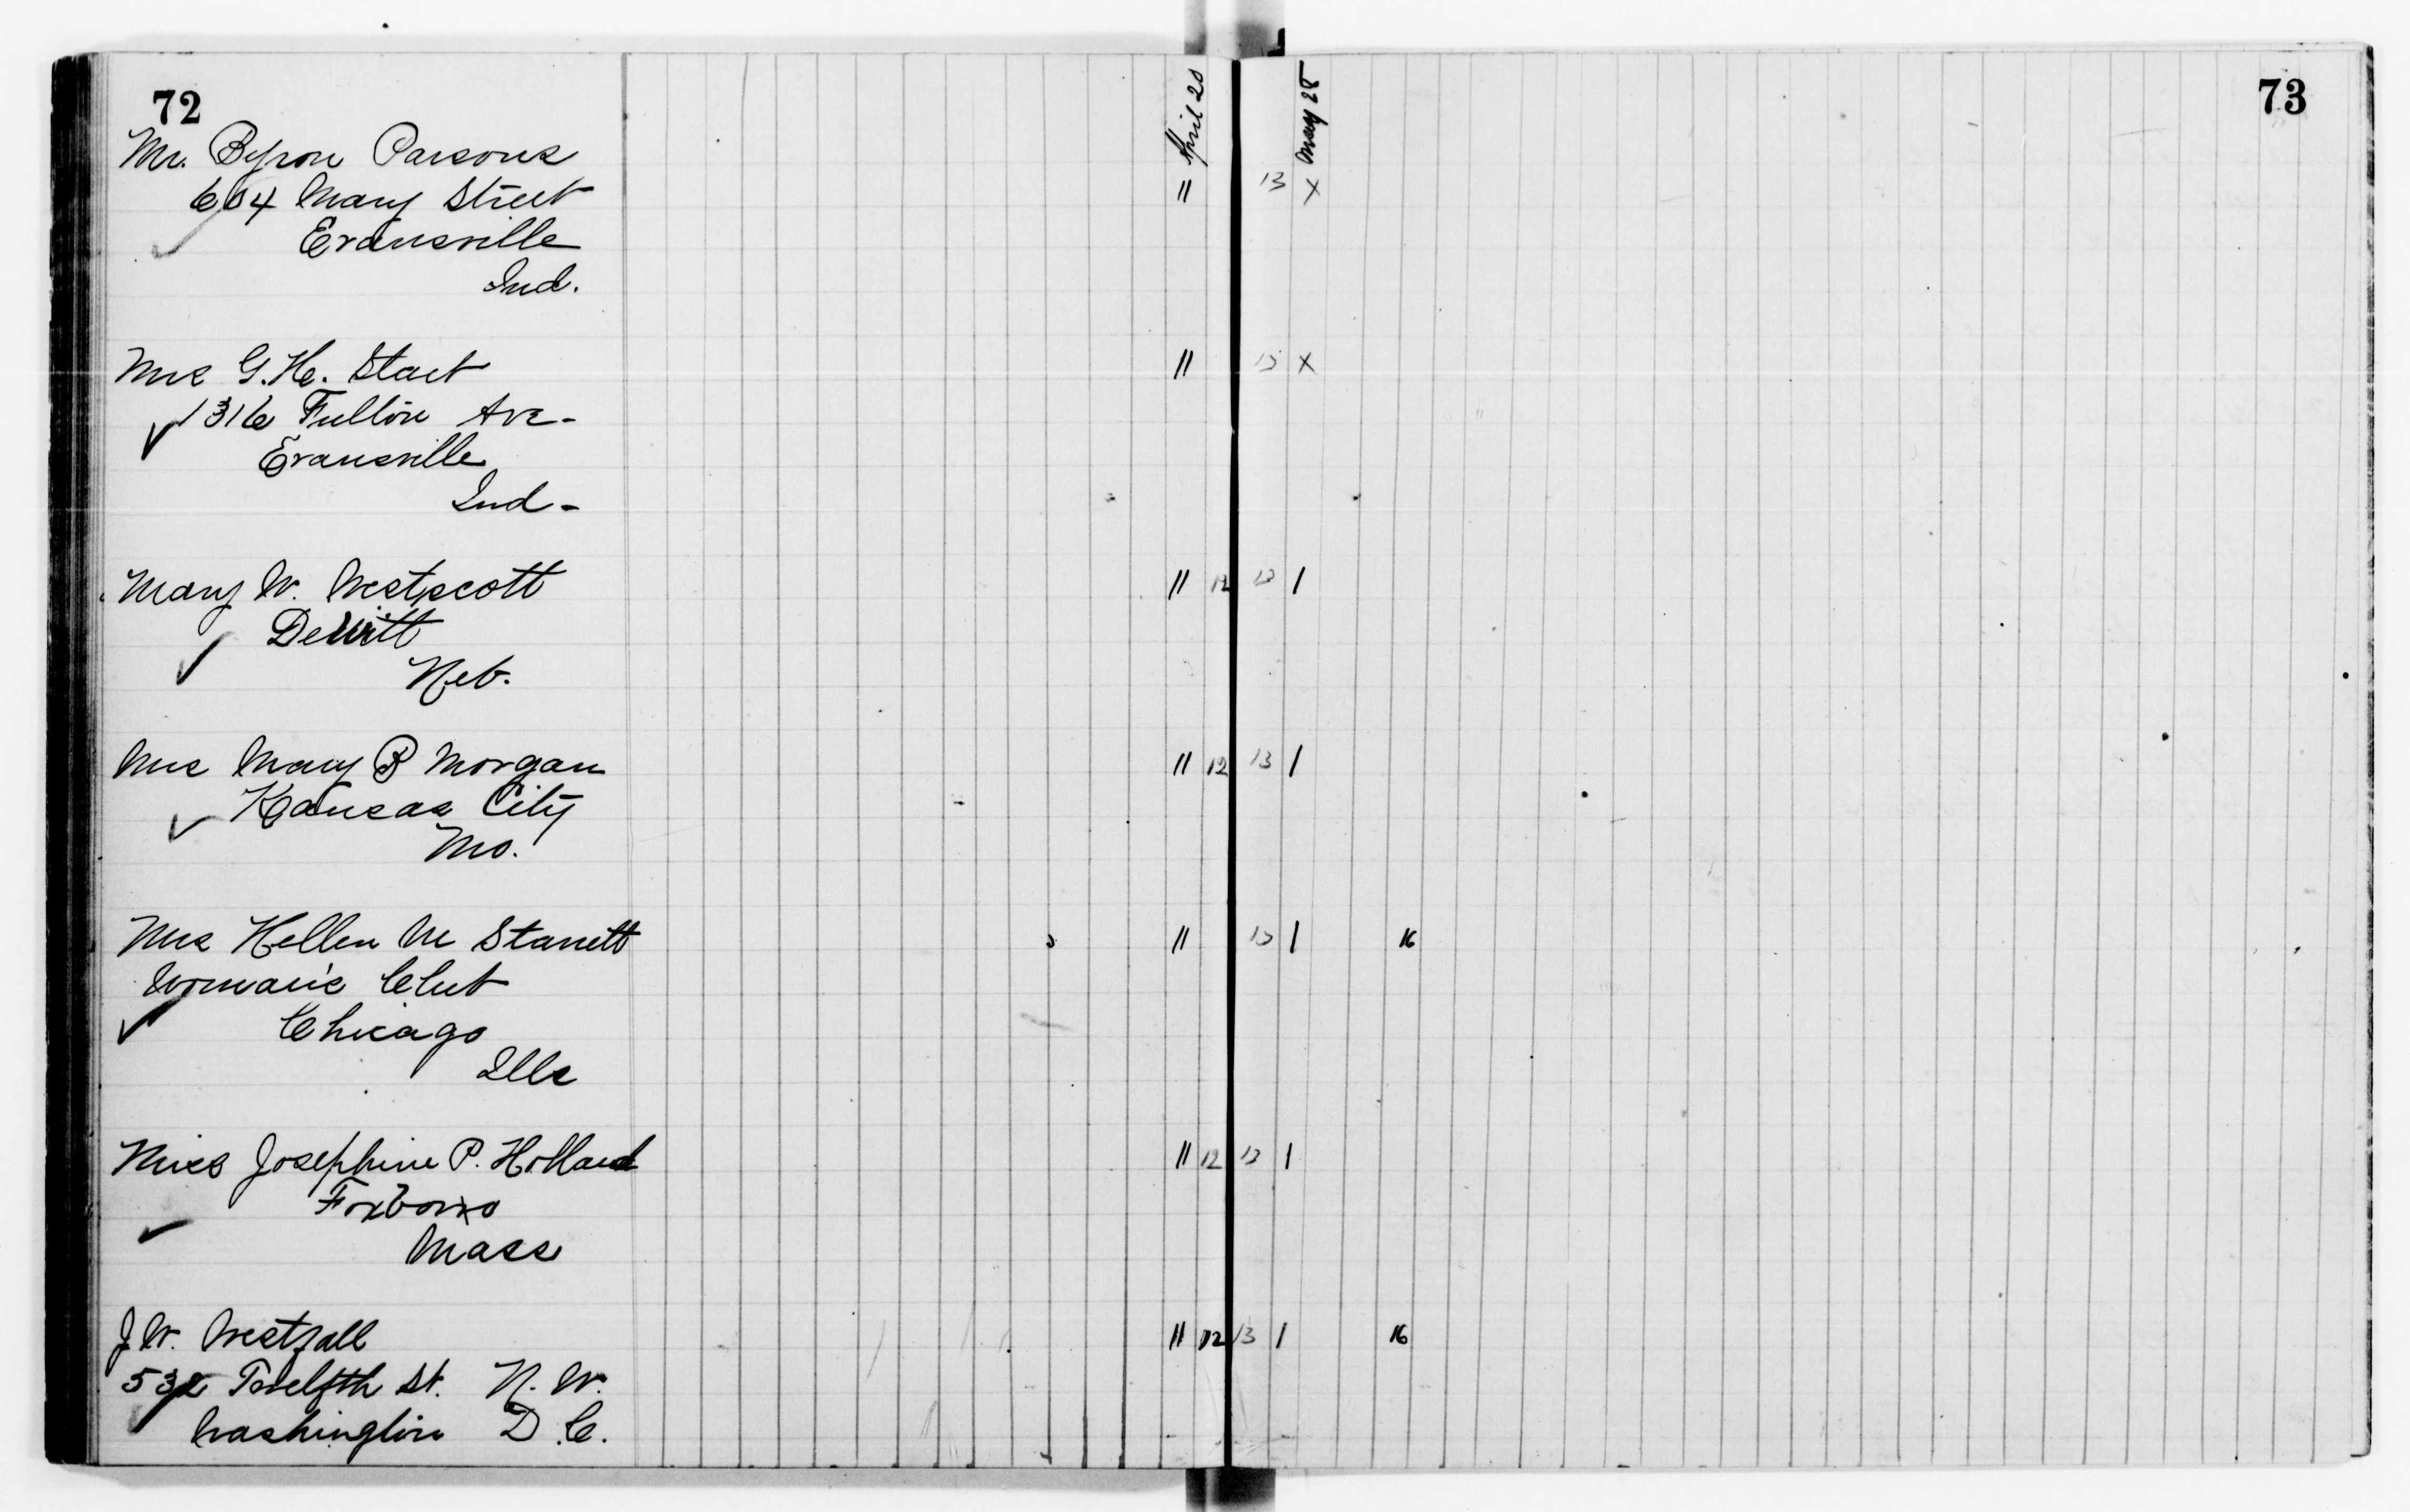 72
73
April 20
May 28
Mr. Byron Parsons
604 Mary Street
Evansville
Ind.
11 13 x
Mrs G. H. Start
1316 Fulton Ave-
Evansville
Ind-
11 13 x
Mary W. Westscott
DeWitt
Neb.
11 12 13 /
Mrs Mary B Morgan
Kansas City
Mo.
11 12 13 /
Mrs Hellen M Starrett
Woman's Club
Chicago
Ills
11 13 / 16
Miss Josephine P. Holland
Foxboro
Mass
11 12 13 /
J W. Westfall
532 Twelfth St. N. W.
Washington D. C.
11 12 13 / 16